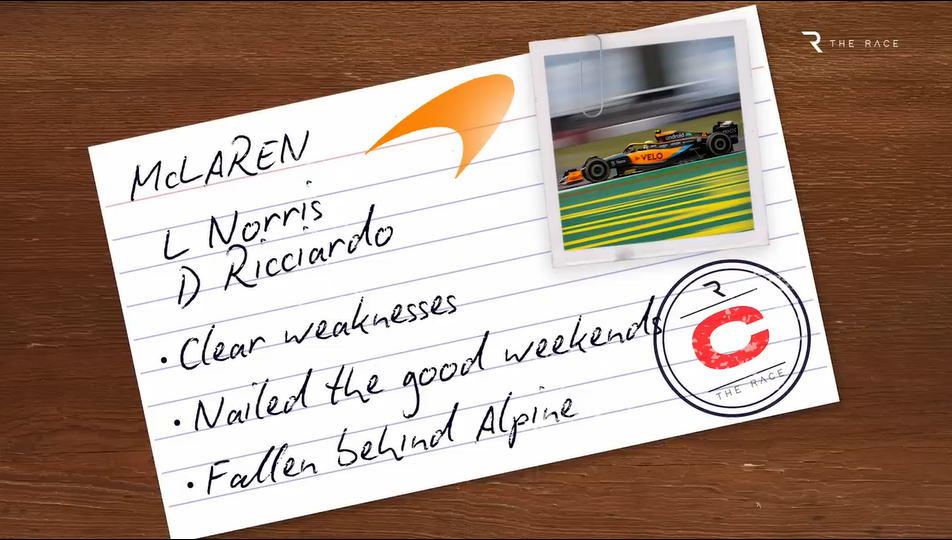 THE RACE
McLAREN
L Norris
D Ricciardo
• Clear weaknesses
• Nailed the good weekends
• Fallen behind Alpine
android
VELO
C
THE RACE